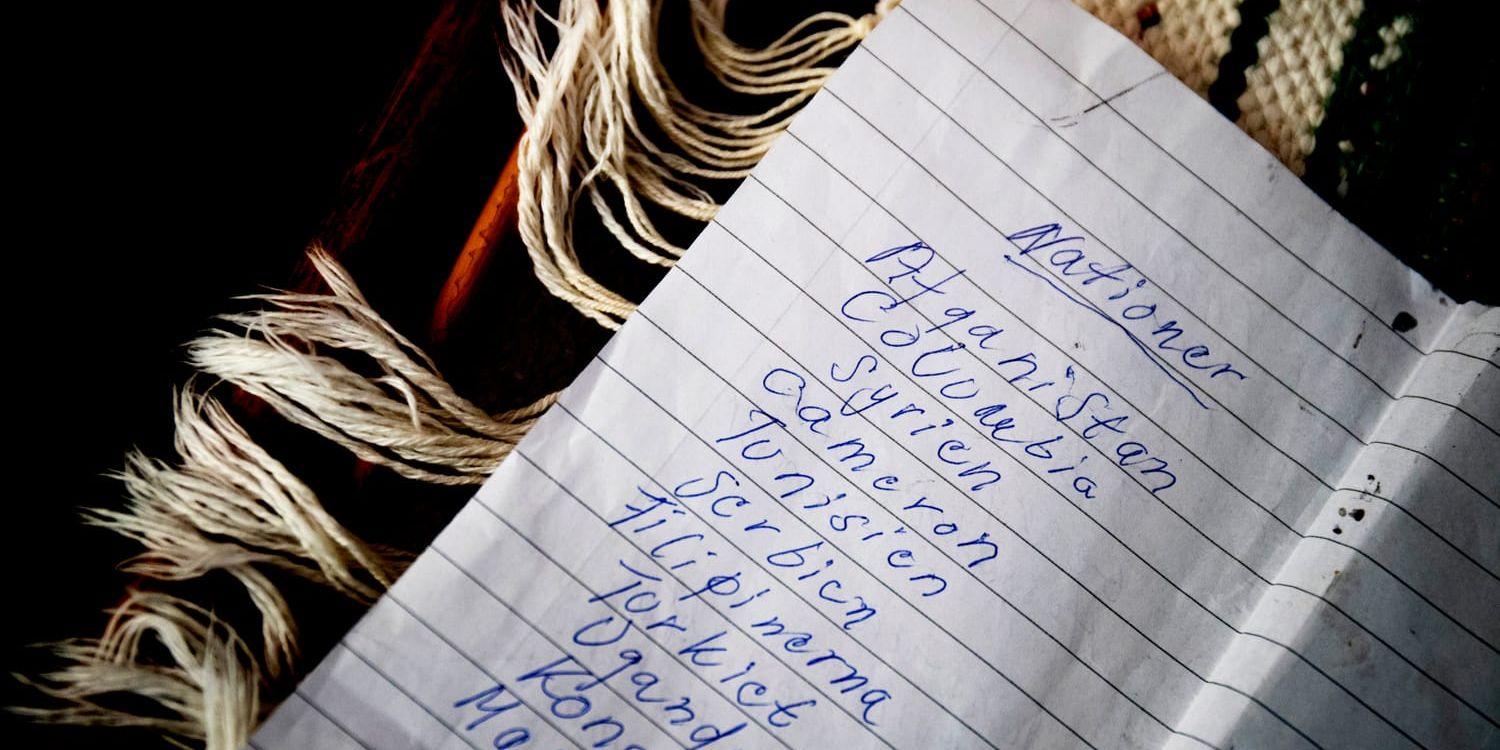 Nationer
Afganistan
Colombia
Syrien
Cameron
Tunisien
Serbien
Filipinerna
Torkiet
Ugand
Kon
Ma